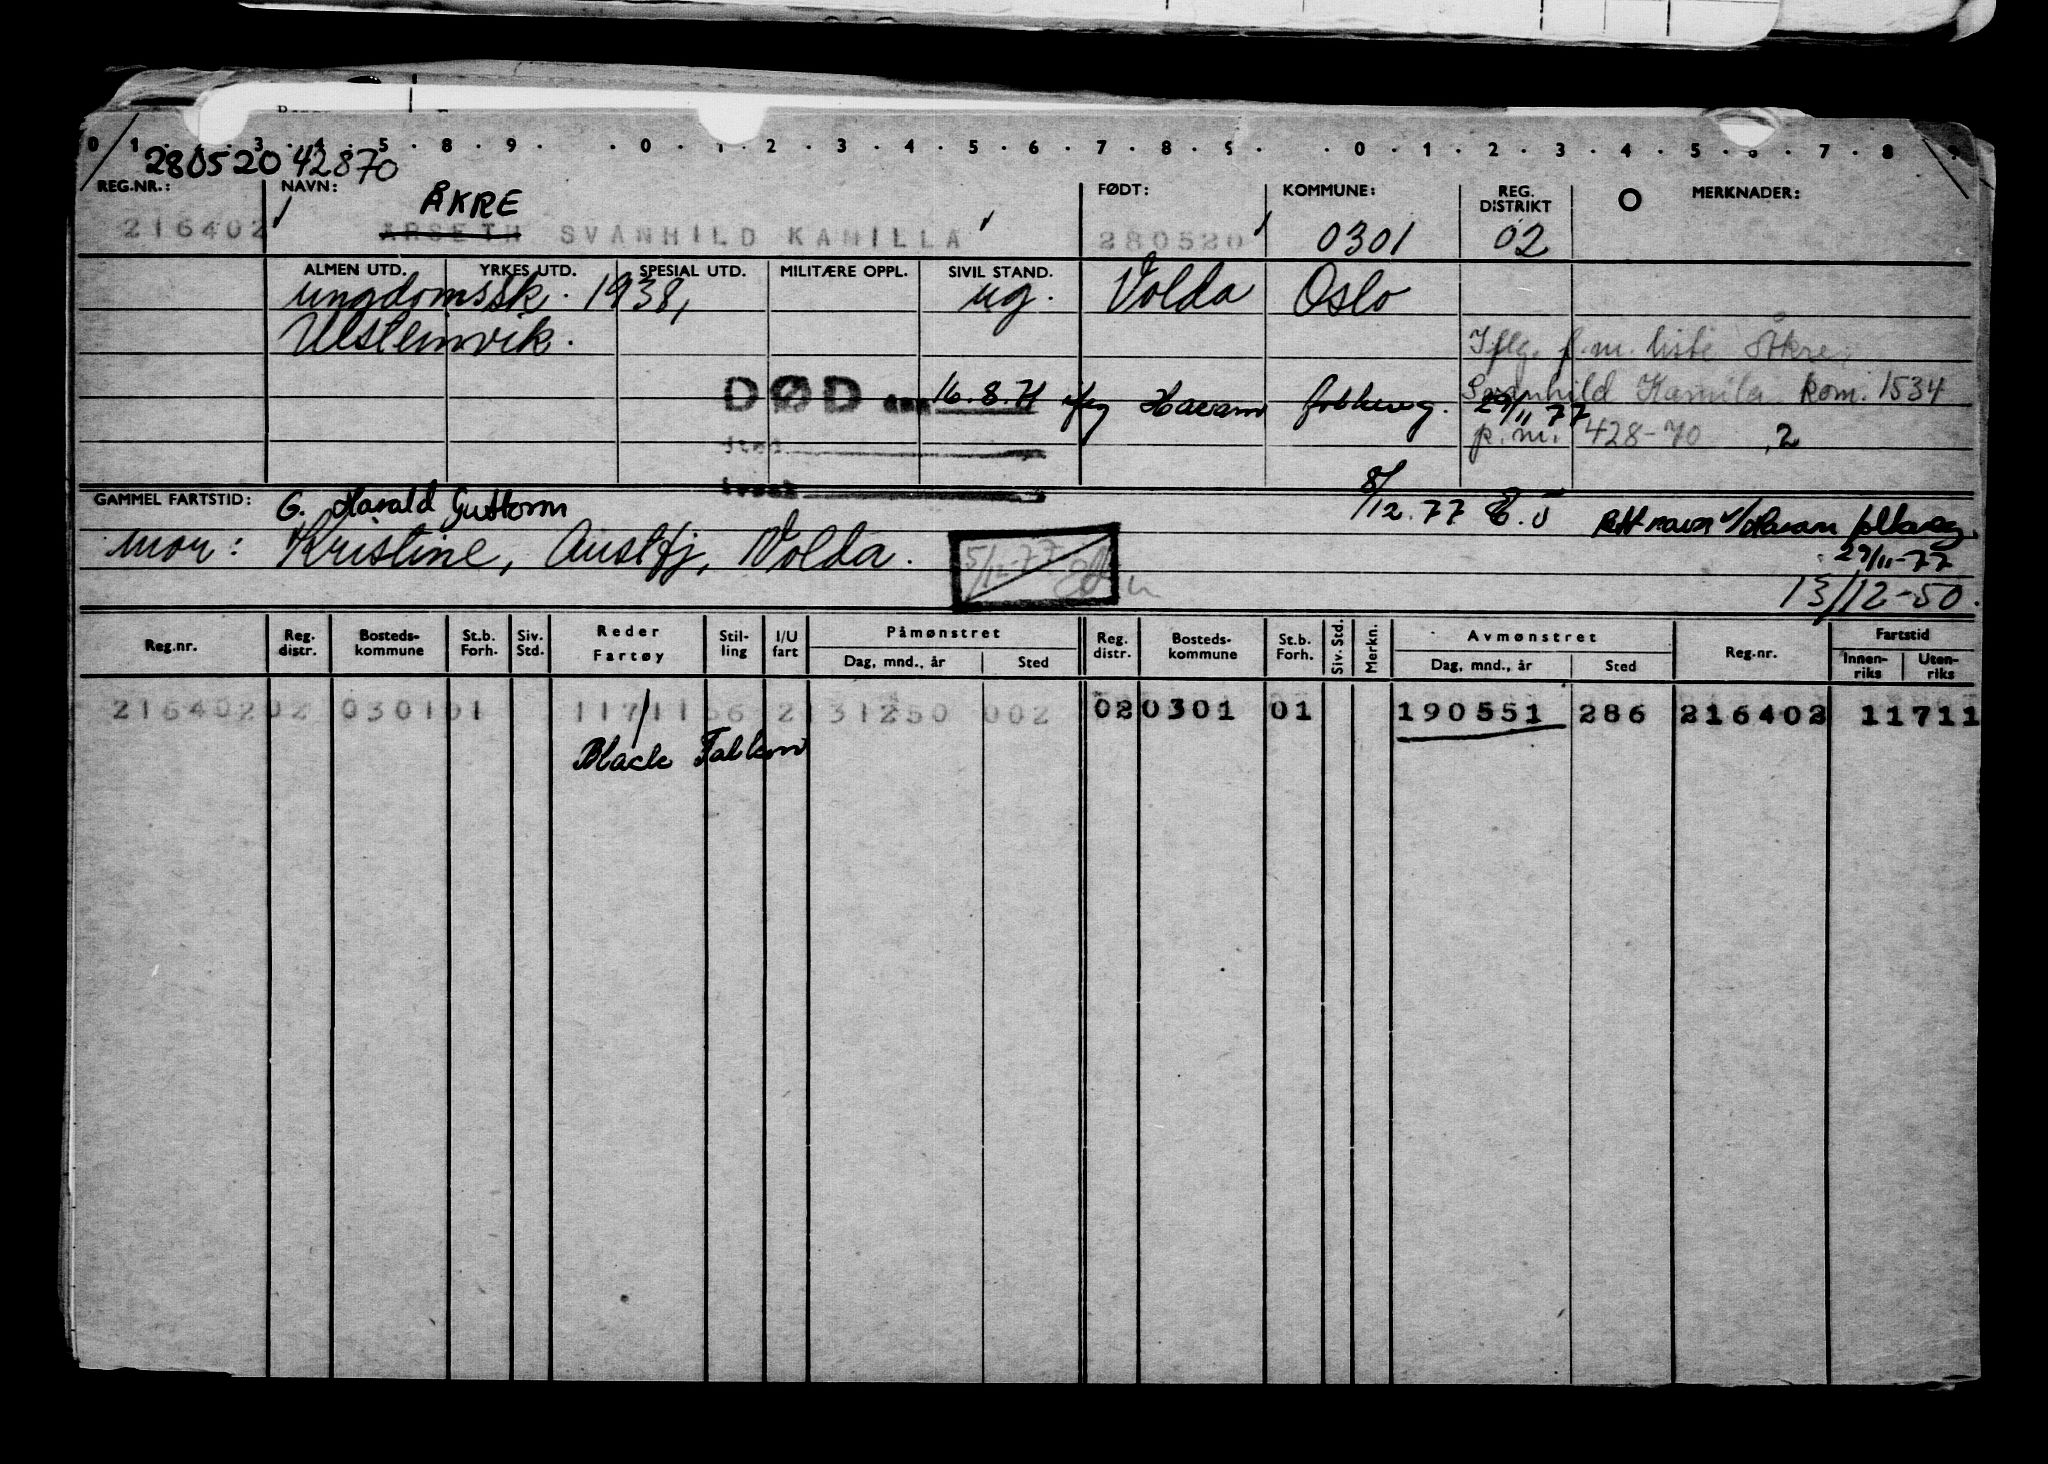 0 1 . . 3 . 4 . 5 . 8 . 9 . . 0 . 1 . 2 . 3 . 4 . 5 . 6 . 7 . 8 . 9 . . 0 . 1 . 2 . 3 . 4 . 5 . 6 . 7 . 8
280520 42870
REG.NR.: NAVN: FØDT: KOMMUNE: REG. DISTRIKT MERKNADER:
ÅKRE
216402 ÅRSETH SVANHILD KAMILLA 280520 0301 02
ALMEN UTD. YRKES UTD. SPESIAL UTD. MILITÆRE OPPL. SIVIL STAND.
ungdomssk. 1938, ug. Volda Oslo
Ulsteinvik.
Iflg. f.m. liste Åkre,
DØD den 16.8.71 iflg Haram folkereg. 29/11 77
Svanhild Kamila kom. 1534
p.nr. 428-70 ,2
sted
GAMMEL FARTSTID: G. Harald Guttorm
8/12.77
Rett navn v/Haram folkereg.
29/11-77
mor: Kristine, Austfj, Volda.
5/12-77
13/12-50.
Reg.nr. Reg. distr. Bosteds- kommune St.b. Forh. Siv. Std. Reder Fartøy Stil- ling I/U fart Påmønstret Dag, mnd., år Sted Reg. distr. Bosteds- kommune St.b. Forh. Siv. Std. Merkn. Avmønstret Dag, mnd., år Sted Reg.nr. Fartstid Innen- riks Uten- riks
216402 02 0301 01 11711 56 2 131250 002 02 0301 01 190551 286 216402 11711
Black Falkon